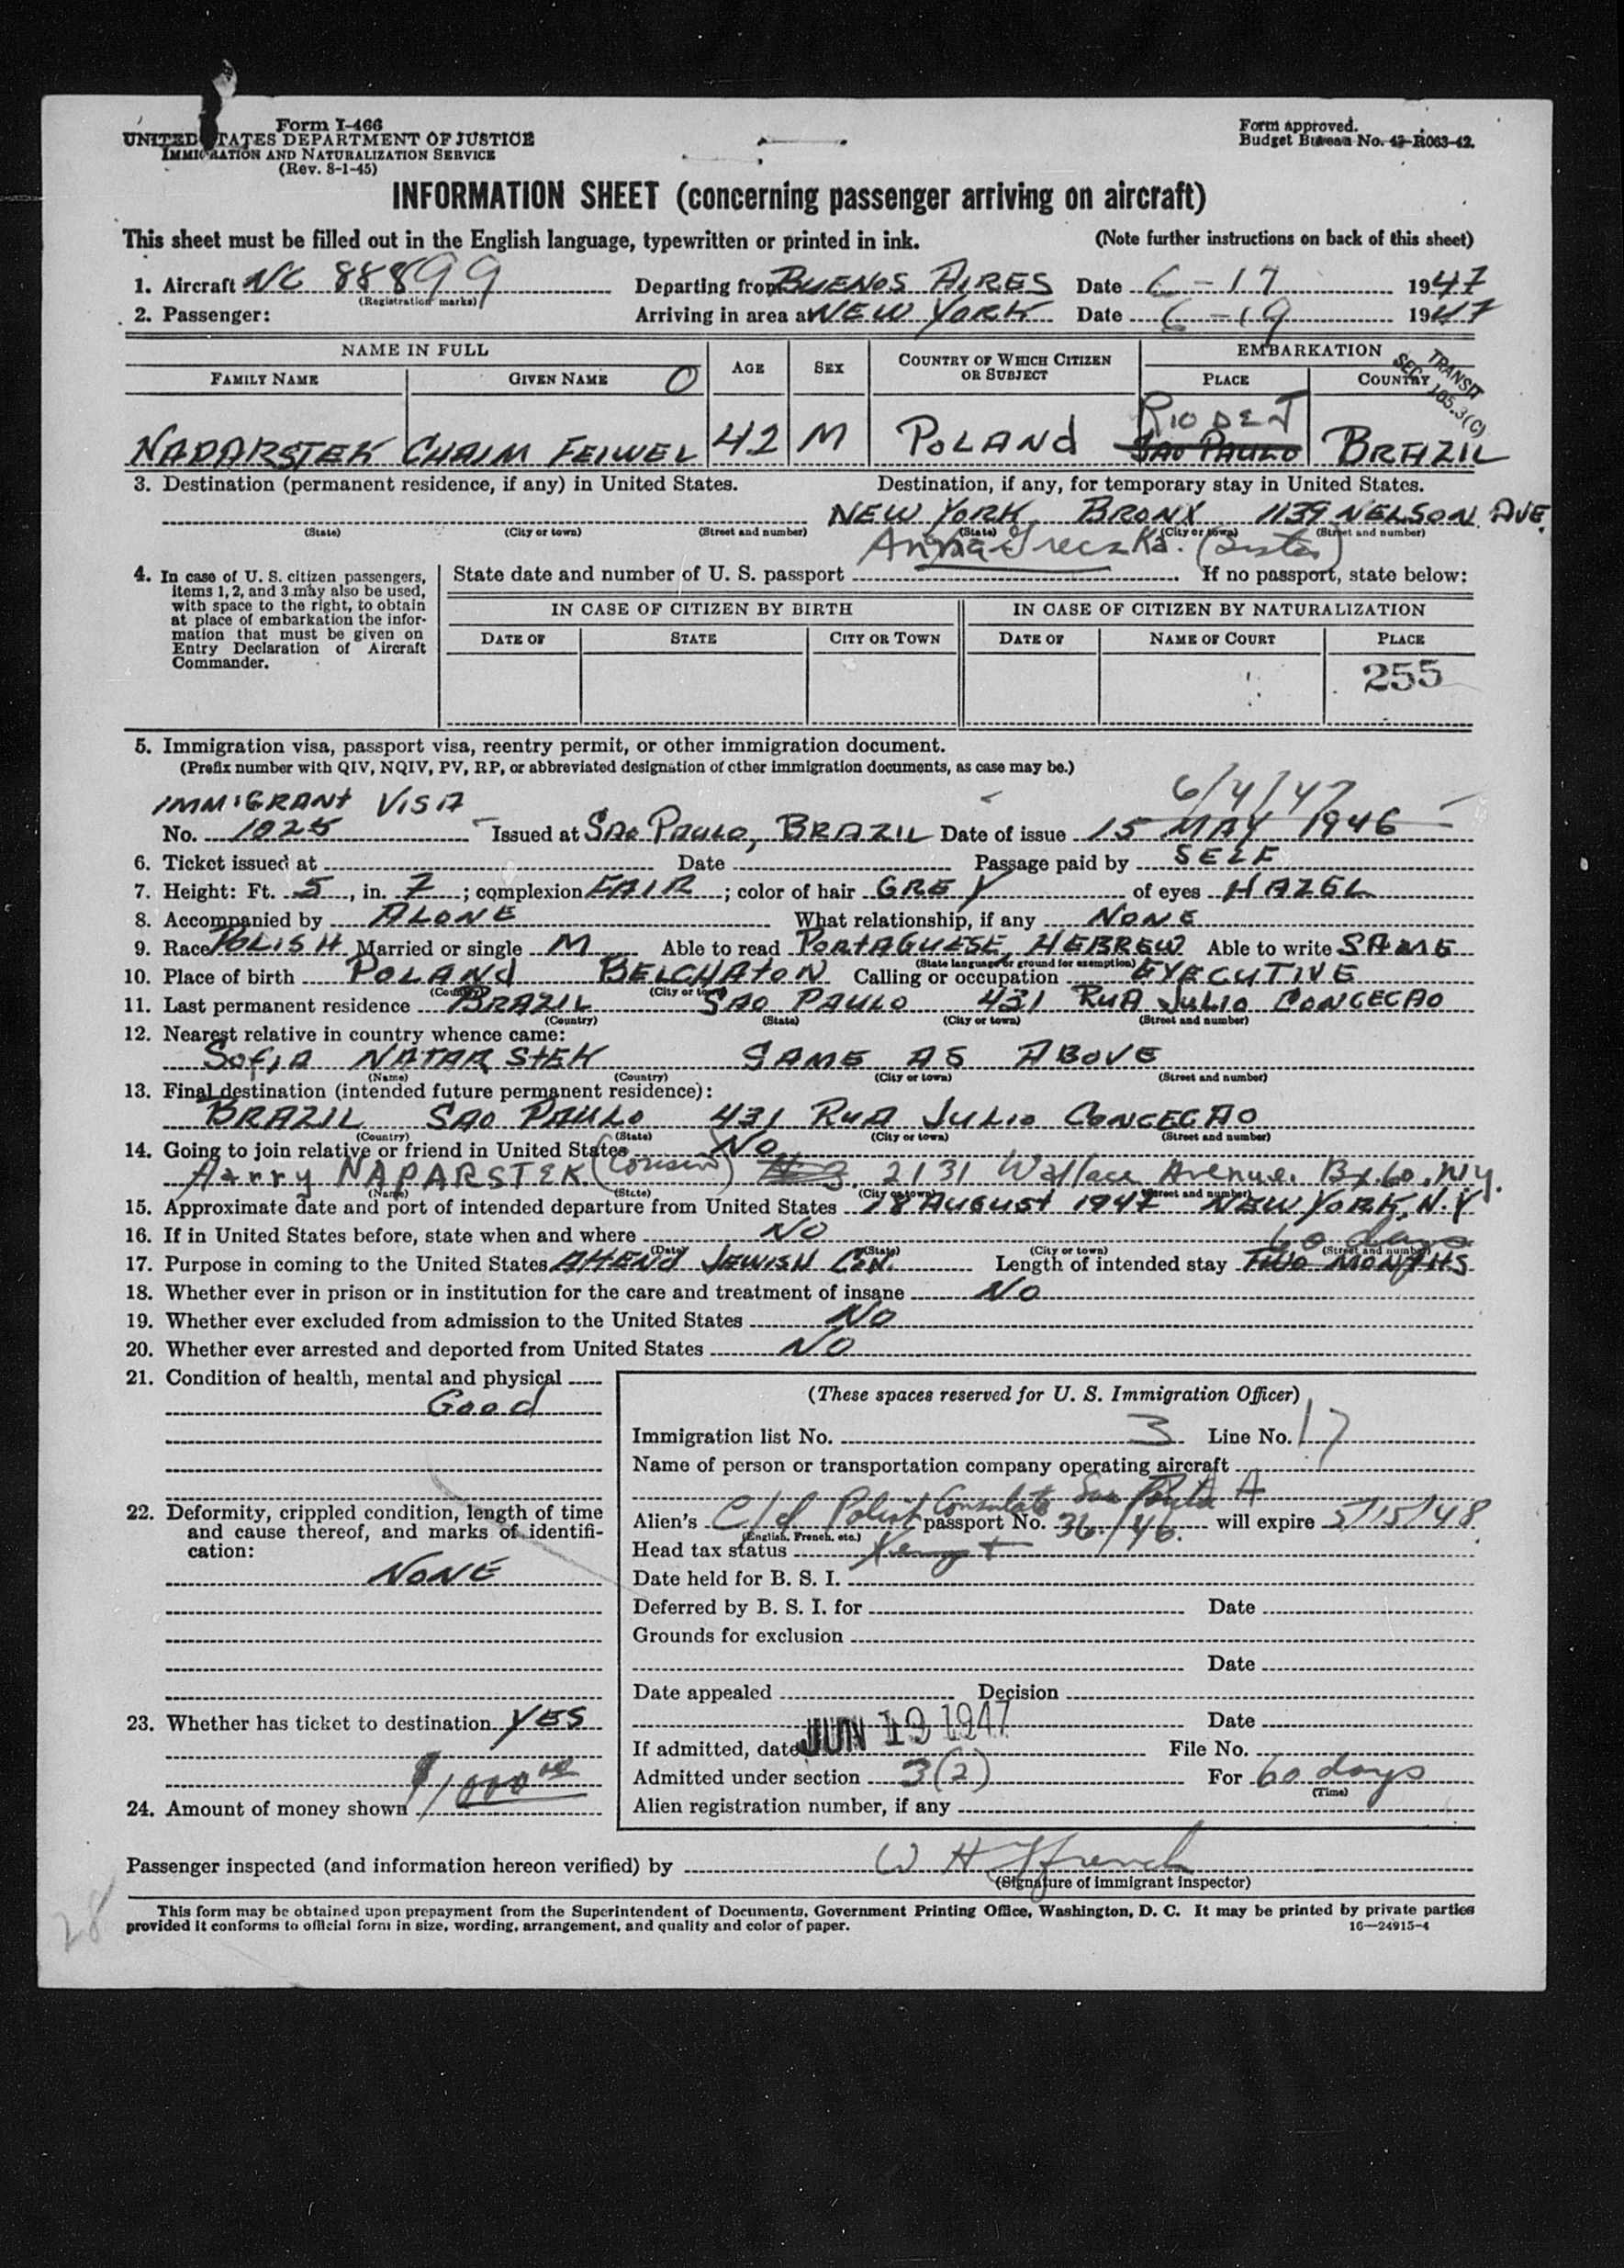 Form I-466
UNITED STATES DEPARTMENT OF JUSTICE
IMMIGRATION AND NATURALIZATION SERVICE
(Rev. 8-1-45)
Form approved.
Budget Bureau No. 43-R063-42.
INFORMATION SHEET (concerning passenger arriving on aircraft)
This sheet must be filled out in the English language, typewritten or printed in ink. (Note further instructions on back of this sheet)
1. Aircraft NC 88899 Departing from BUENOS AIRES Date 6-17 1947
(Registration marks)
2. Passenger: Arriving in area at NEW YORK Date 6-19 1947
NAME IN FULL AGE SEX COUNTRY OF WHICH CITIZEN OR SUBJECT EMBARKATION
FAMILY NAME GIVEN NAME O PLACE COUNTRY
TRANSIT
SEC. 105.3(C)
RIO DE J
NAPARSTEK CHAIM FEIWEL 42 M POLAND SAO PAULO BRAZIL
3. Destination (permanent residence, if any) in United States. Destination, if any, for temporary stay in United States.
NEW YORK BRONX 1139 NELSON AVE.
(State) (City or town) (Street and number) (State) (City or town) (Street and number)
Anna Greczka. (Sister)
4. In case of U. S. citizen passengers, items 1, 2, and 3 may also be used, with space to the right, to obtain at place of embarkation the information that must be given on Entry Declaration of Aircraft Commander.
State date and number of U. S. passport If no passport, state below:
IN CASE OF CITIZEN BY BIRTH IN CASE OF CITIZEN BY NATURALIZATION
DATE OF STATE CITY OR TOWN DATE OF NAME OF COURT PLACE
255
5. Immigration visa, passport visa, reentry permit, or other immigration document.
(Prefix number with QIV, NQIV, PV, RP, or abbreviated designation of other immigration documents, as case may be.)
IMMIGRANT VISA 6/4/47
No. 1025 Issued at SAO PAULO, BRAZIL Date of issue 15 MAY 1946
6. Ticket issued at Date Passage paid by SELF
7. Height: Ft. 5, in. 7; complexion FAIR; color of hair GREY of eyes HAZEL
8. Accompanied by ALONE What relationship, if any NONE
9. Race POLISH Married or single M Able to read PORTAGUESE, HEBREW Able to write SAME
(State language or ground for exemption)
10. Place of birth POLAND BELCHATON Calling or occupation EXECUTIVE
(Country) (City or town)
11. Last permanent residence BRAZIL SAO PAULO 431 RUA JULIO CONCECAO
(Country) (State) (City or town) (Street and number)
12. Nearest relative in country whence came:
SOFIA NATARSTEK SAME AS ABOVE
(Name) (Country) (City or town) (Street and number)
13. Final destination (intended future permanent residence):
BRAZIL SAO PAULO 431 RUA JULIO CONCECAO
(Country) (State) (City or town) (Street and number)
14. Going to join relative or friend in United States NO
Harry NAPARSTEK (Cousin) 2131 Wallace Avenue. Bx. 60. N.Y.
(Name) (State) (City or town) (Street and number)
15. Approximate date and port of intended departure from United States 18 AUGUST 1947 NEW YORK, N.Y
16. If in United States before, state when and where NO
(Date) (State) (City or town) (Street and number)
60 days
17. Purpose in coming to the United States ATTEND JEWISH CON. Length of intended stay TWO MONTHS
18. Whether ever in prison or in institution for the care and treatment of insane NO
19. Whether ever excluded from admission to the United States NO
20. Whether ever arrested and deported from United States NO
21. Condition of health, mental and physical
Good
22. Deformity, crippled condition, length of time and cause thereof, and marks of identification:
NONE
23. Whether has ticket to destination YES
$1000.00
24. Amount of money shown
(These spaces reserved for U. S. Immigration Officer)
Immigration list No. 3 Line No. 17
Name of person or transportation company operating aircraft
P A A
Consulate Sao Paulo
Alien's C/I Polish passport No. 36/46. will expire 5/15/48
(English, French, etc.)
Head tax status Xempt
Date held for B. S. I.
Deferred by B. S. I. for Date
Grounds for exclusion
Date
Date appealed Decision
Date
If admitted, date JUN 19 1947 File No.
Admitted under section 3(2) For 60 days
(Time)
Alien registration number, if any
Passenger inspected (and information hereon verified) by W H Ffrench
(Signature of immigrant inspector)
This form may be obtained upon prepayment from the Superintendent of Documents, Government Printing Office, Washington, D. C. It may be printed by private parties
provided it conforms to official form in size, wording, arrangement, and quality and color of paper. 16—24915-4
28